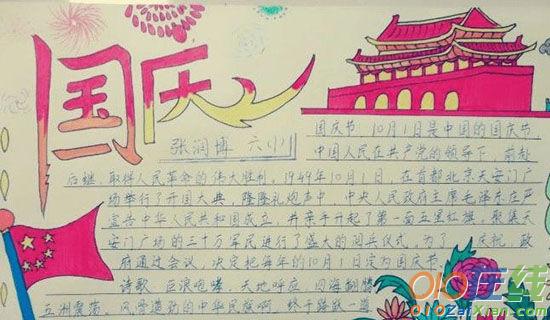 国庆
张润博 六(1)
国庆节,10月1日是中国的国庆节,
中国人民在共产党的领导下,前赴
后继,取得人民革命的伟大胜利,1949年10月1日,在首都北京天安门广
场举行了开国大典,隆隆礼炮声中,中央人民政府主席毛泽东在庄
宣告中华人民共和国成立,并亲手升起了第一面五星红旗,聚集天
安门广场的三十万军民进行了盛大的阅兵仪式,为了 庆祝,政
府通过会议,决定把每年的10月1日定为国庆节。
诗歌,巨浪咆哮,天地呼应,四海翻腾
五洲震荡,风雷激动的中华民族啊,终于踏破一道
010在线
ZaiXian.com